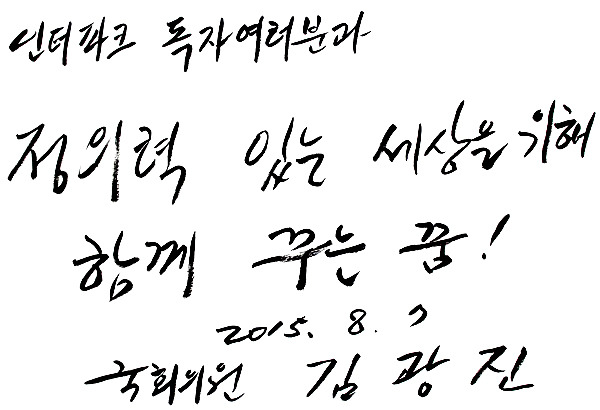 인터파크 독자여러분과
정의력 있는 세상을 위해
함께 꾸는 꿈!
2015. 8. 7
국회의원 김광진